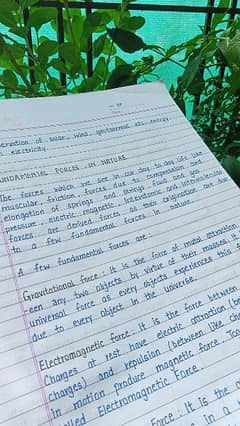 ervation of solar, wind, geothermal etc. energy
electricity.
UNDAMENTAL FORCES IN NATURE
The forces which we see in our day to day life like
muscular, friction, forces due to compression and
elongation of springs and strings, fluid and gas
pressure, electric, magnetic, interatomic and intermolecular
forces are derived forces as their origination are due
to a few fundamental forces in nature.
A few fundamental forces are:
Gravitational force: It is the force of mutual attraction
-een any two objects by virtue of their masses. It
universal force as every objects experiences this
due to every object in the universe.
Electromagnetic force: It is the force between
Charges at rest have electric attraction (bet
charges) and repulsion (between like ch
in motion produce magnetic force. Toge
lled Electromagnetic Force.
Force: It is the
s in a